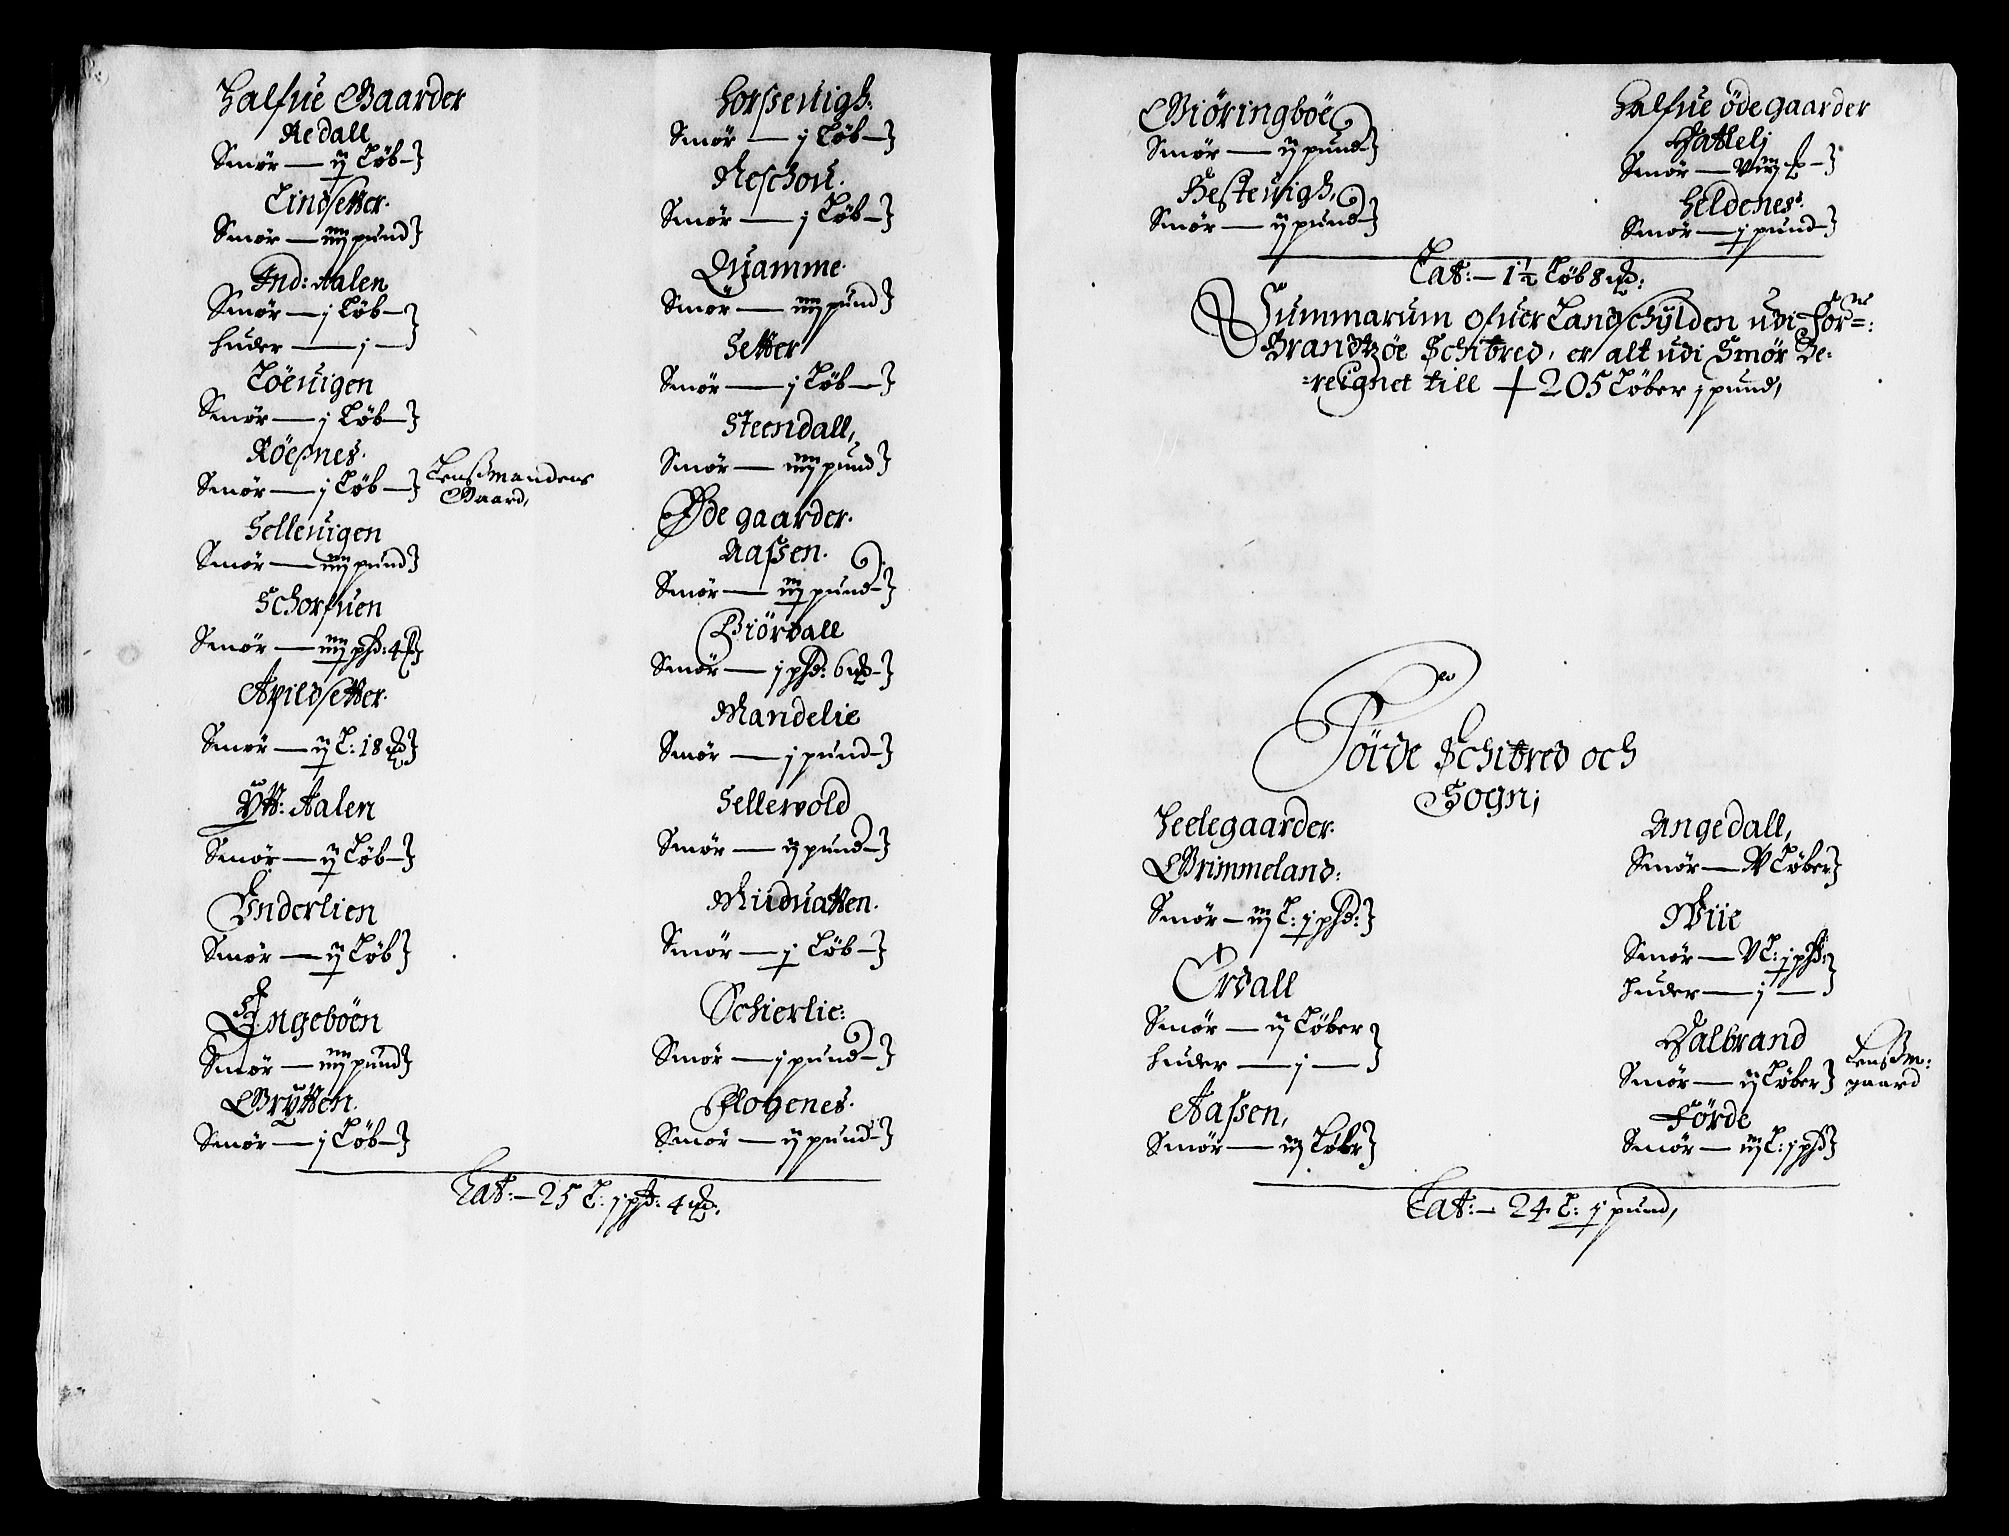 Halfue Gaarder
Redall
Smør — ij Løb —
Lindsetter.
Smør — iiij pund
Ind: Aalen
Smør — j Løb —
huder — j —
Löeuigen
Smør — j Løb —
Röesnes.
Smør — j Løb — Lensmandens
Gaard,
Selleuigen
Smør — iiij pund
Schorfuen
Smør — iiij pd: 4
Apildsetter.
Smør — ij L: 18
Ÿtt: Aalen
Smør — ij Løb —
Inderlien
Smør — ij Løb
Engeböen
Smør — iiij pund
Grÿtten.
Smør — j Løb —
horsseuigh:
Smør — j Løb —
Reschou.
Smør — j Løb —
Quamme.
Smør — iiij pund
Setter
Smør — j Løb —
Steendall,
Smør — iiij pund
Øde gaarder.
Aassen.
Smør — iij pund —
Giördall
Smør — j pd: 6 —
Mandelie
Smør — j pund —
Sellevold
Smør — ij pund —
Miiduatten.
Smør — j Løb —
Schierlie:
Smør — j pund —
Flogenes.
Smør — ij pund —
Lat: — 25 L: j pd: 4
Giöringböe
Smør — ij pund —
Hesteuigh,
Smør — ij pund —
Halfue öde gaarder
Hatlelj
Smør — viij —
heldenes.
Smør — j pund —
Lat: — 1½ Løb 8
Summarum ofuer Landschÿlden udi For:ne
Brandtzöe Schibred, er alt udi Smør Be-
reignet till + 205 Løber j pund,
Förde Schibred och
Sogn;
Heelegaarder.
Grimmeland:
Smør — iij L: j pd:
Erdall
Smør — ij Løber
huder — j —
Aassen,
Smør — iij Løber
Angedall,
Smør — V Løber
Wiie
Smør — V L: j pd:
huder — j —
Halbrand
Smør — ij Løber Lensm:
gaard
Förde
Smør — iij L: j pd
Lat: — 24 L: j pund,